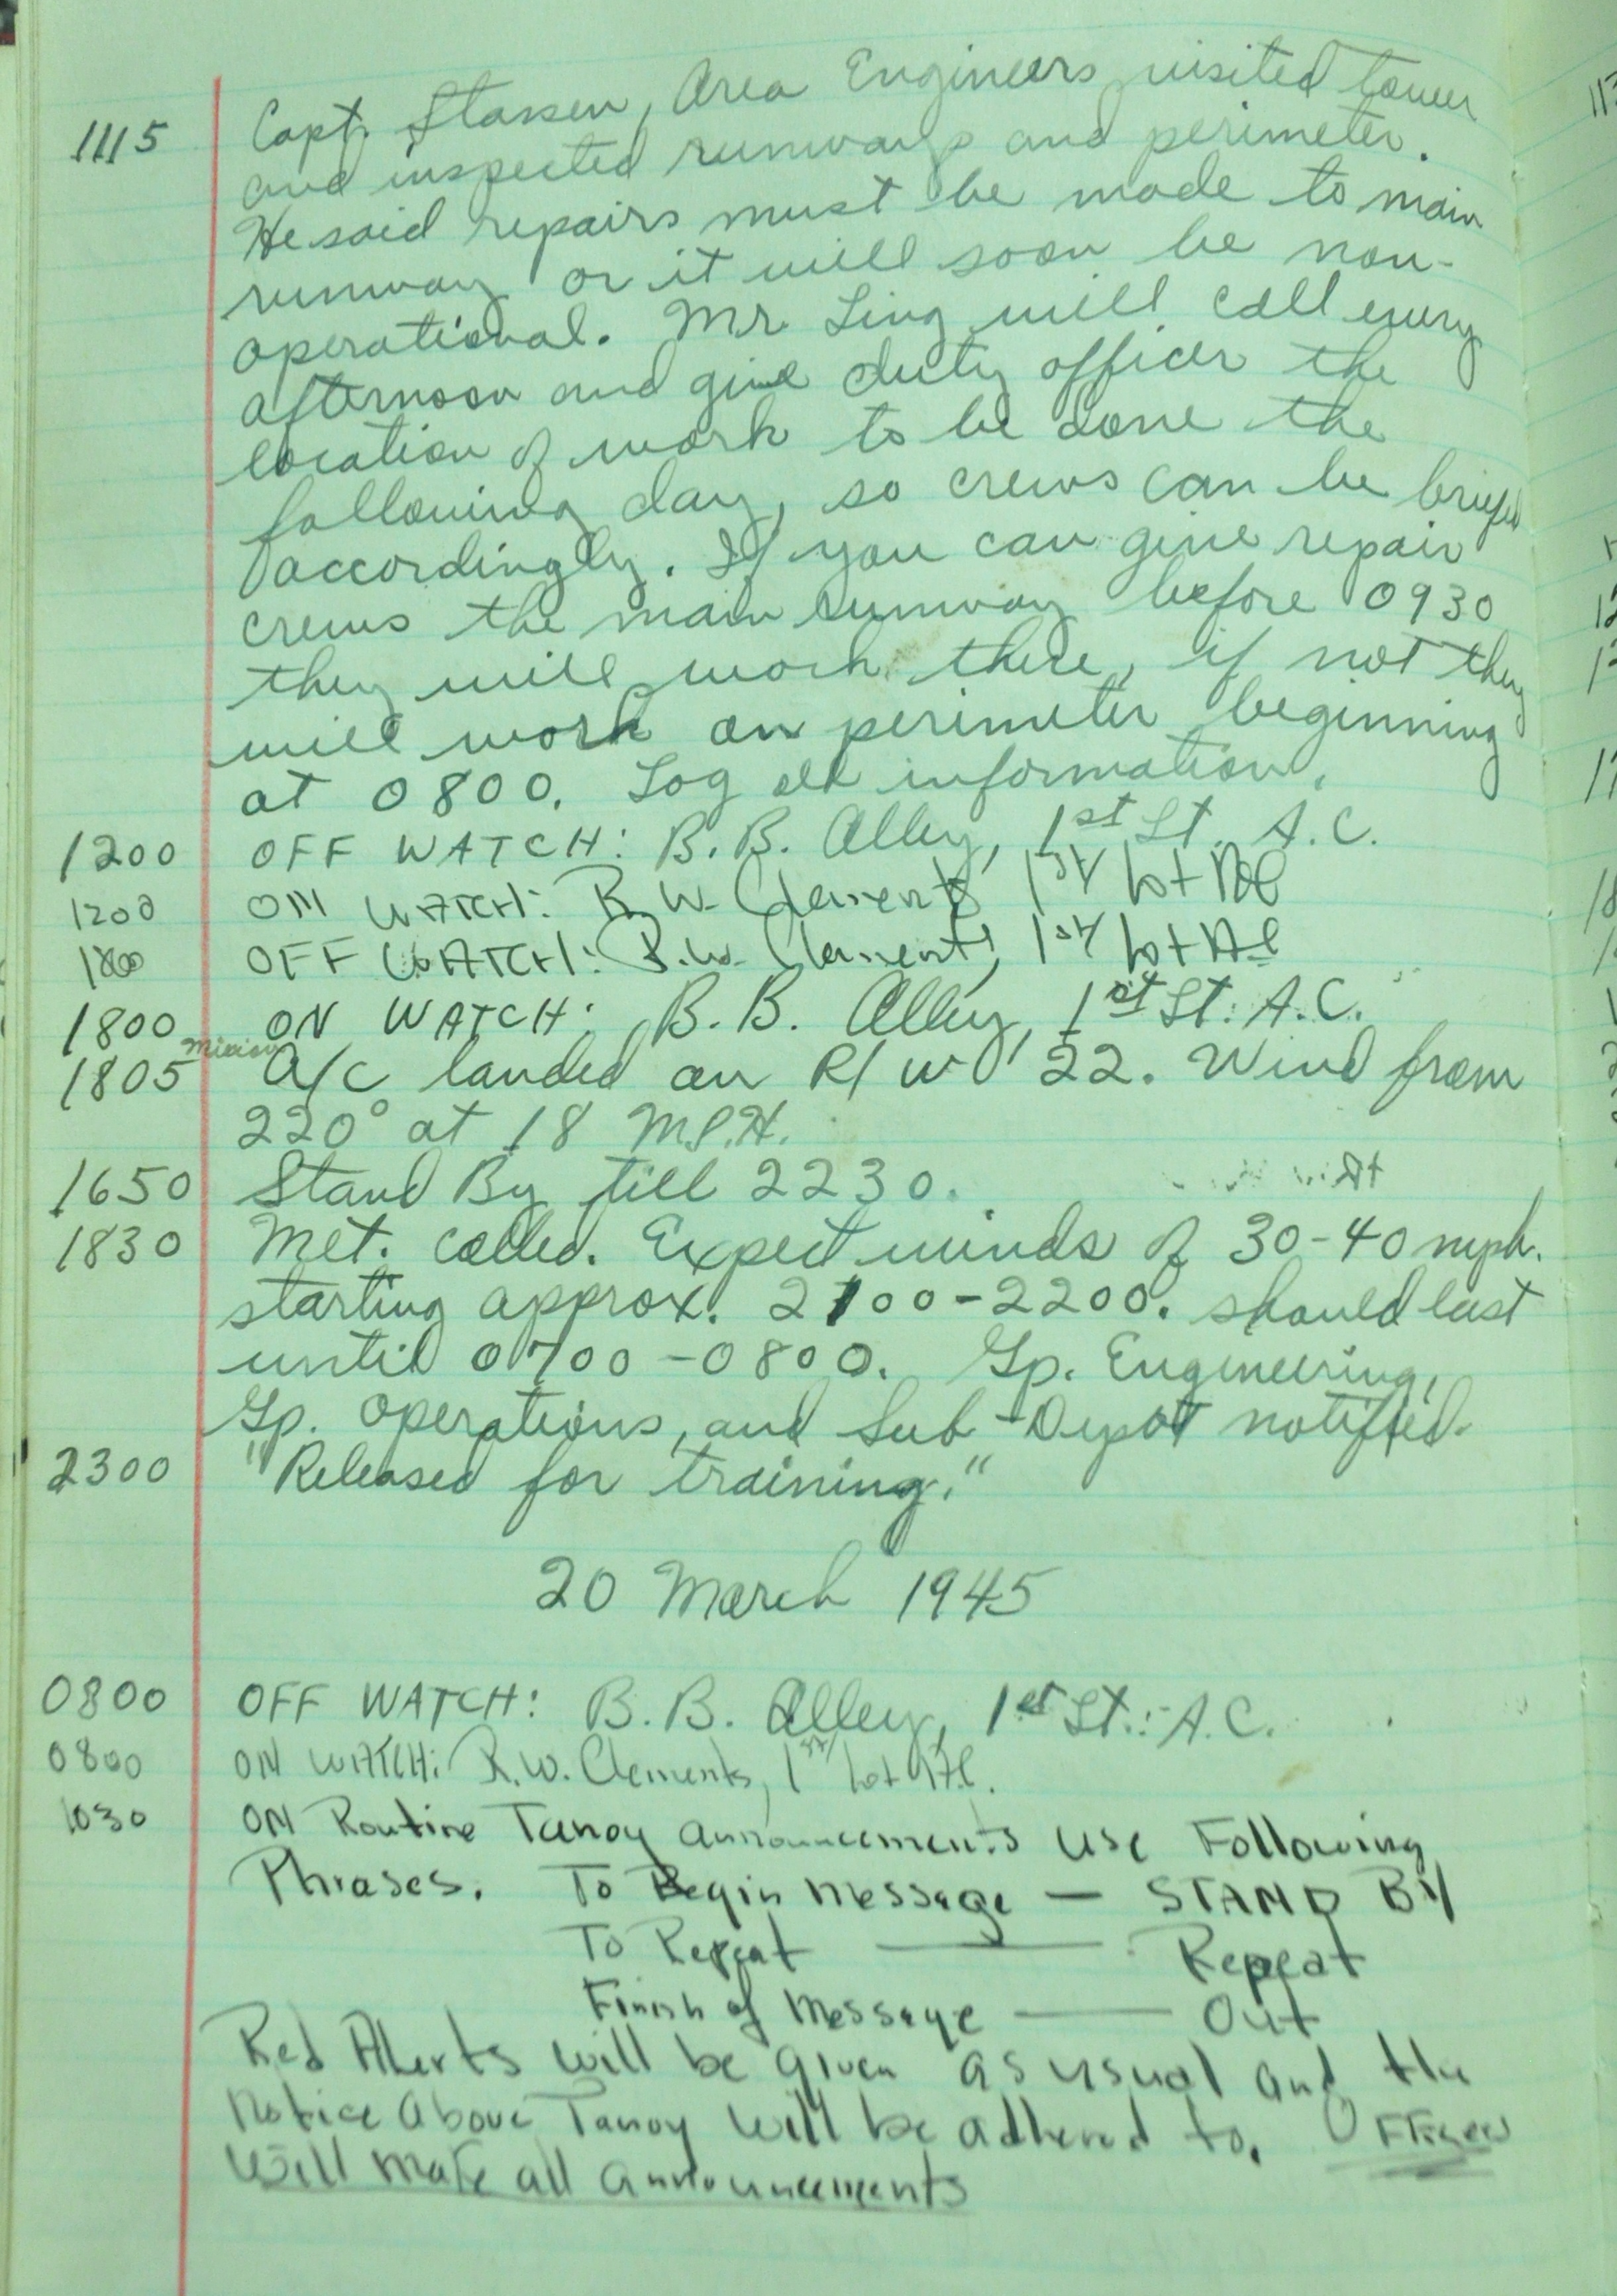 1115 Capt. Stassen, Area Engineers visited tower
and inspected runways and perimeter.
He said repairs must be made to main
runway or it will soon be non-
operational. Mr Ling will call every
afternoon and give duty officer the
location of work to be done the
following day, so crews can be briefed
accordingly. If you can give repair
crews the main runway before 0930
they will work there, if not they
will work on perimeter beginning
at 0800. Log all information.
1200 OFF WATCH: B. B. Alley, 1st Lt. A.C.
1200 ON WATCH: R W Clements 1st Lt
1800 OFF WATCH: R.W. Clements, 1st Lt
1800 ON WATCH: B. B. Alley, 1st Lt. A.C.
1805 Mission A/C landed on R/W 22. Wind from
220° at 18 M.P.H.
1650 Stand By till 2230.
1830 Met. called. Expect winds of 30-40 mph.
starting approx. 2100-2200. should last
until 0700-0800. Gp. Engineering,
Gp. Operations, and Sub-Depot notified.
2300 "Released for training."
20 March 1945
0800 OFF WATCH: B. B. Alley, 1st Lt. A.C.
0800 ON WATCH: R.W. Clements, 1st Lt
1030 ON Routine Tanoy announcements use Following
Phrases. To Begin Message — STAND BY
To Repeat — Repeat
Finish of Message — Out
Red Alerts will be given as usual and the
Notice Above Tanoy will be adhered to.
will make all announcements